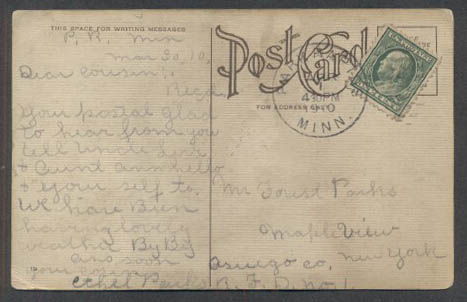 THIS SPACE FOR WRITING MESSAGES
P. R. Min
Mar 30, 10,
Dear Cousin:
Recd
Your postal glad
to hear from you
tell Uncle
& Aunt hello
& Your self to.
We have Bien
having lovely
weather By By
ans soon
your cousin
Ethel Parks
Post Card
FOR ADDRESS ONLY
430 PM
MINN.
Mr Forist Parks
Mapleview
Oswego co, New York
R. F. D. no 1.